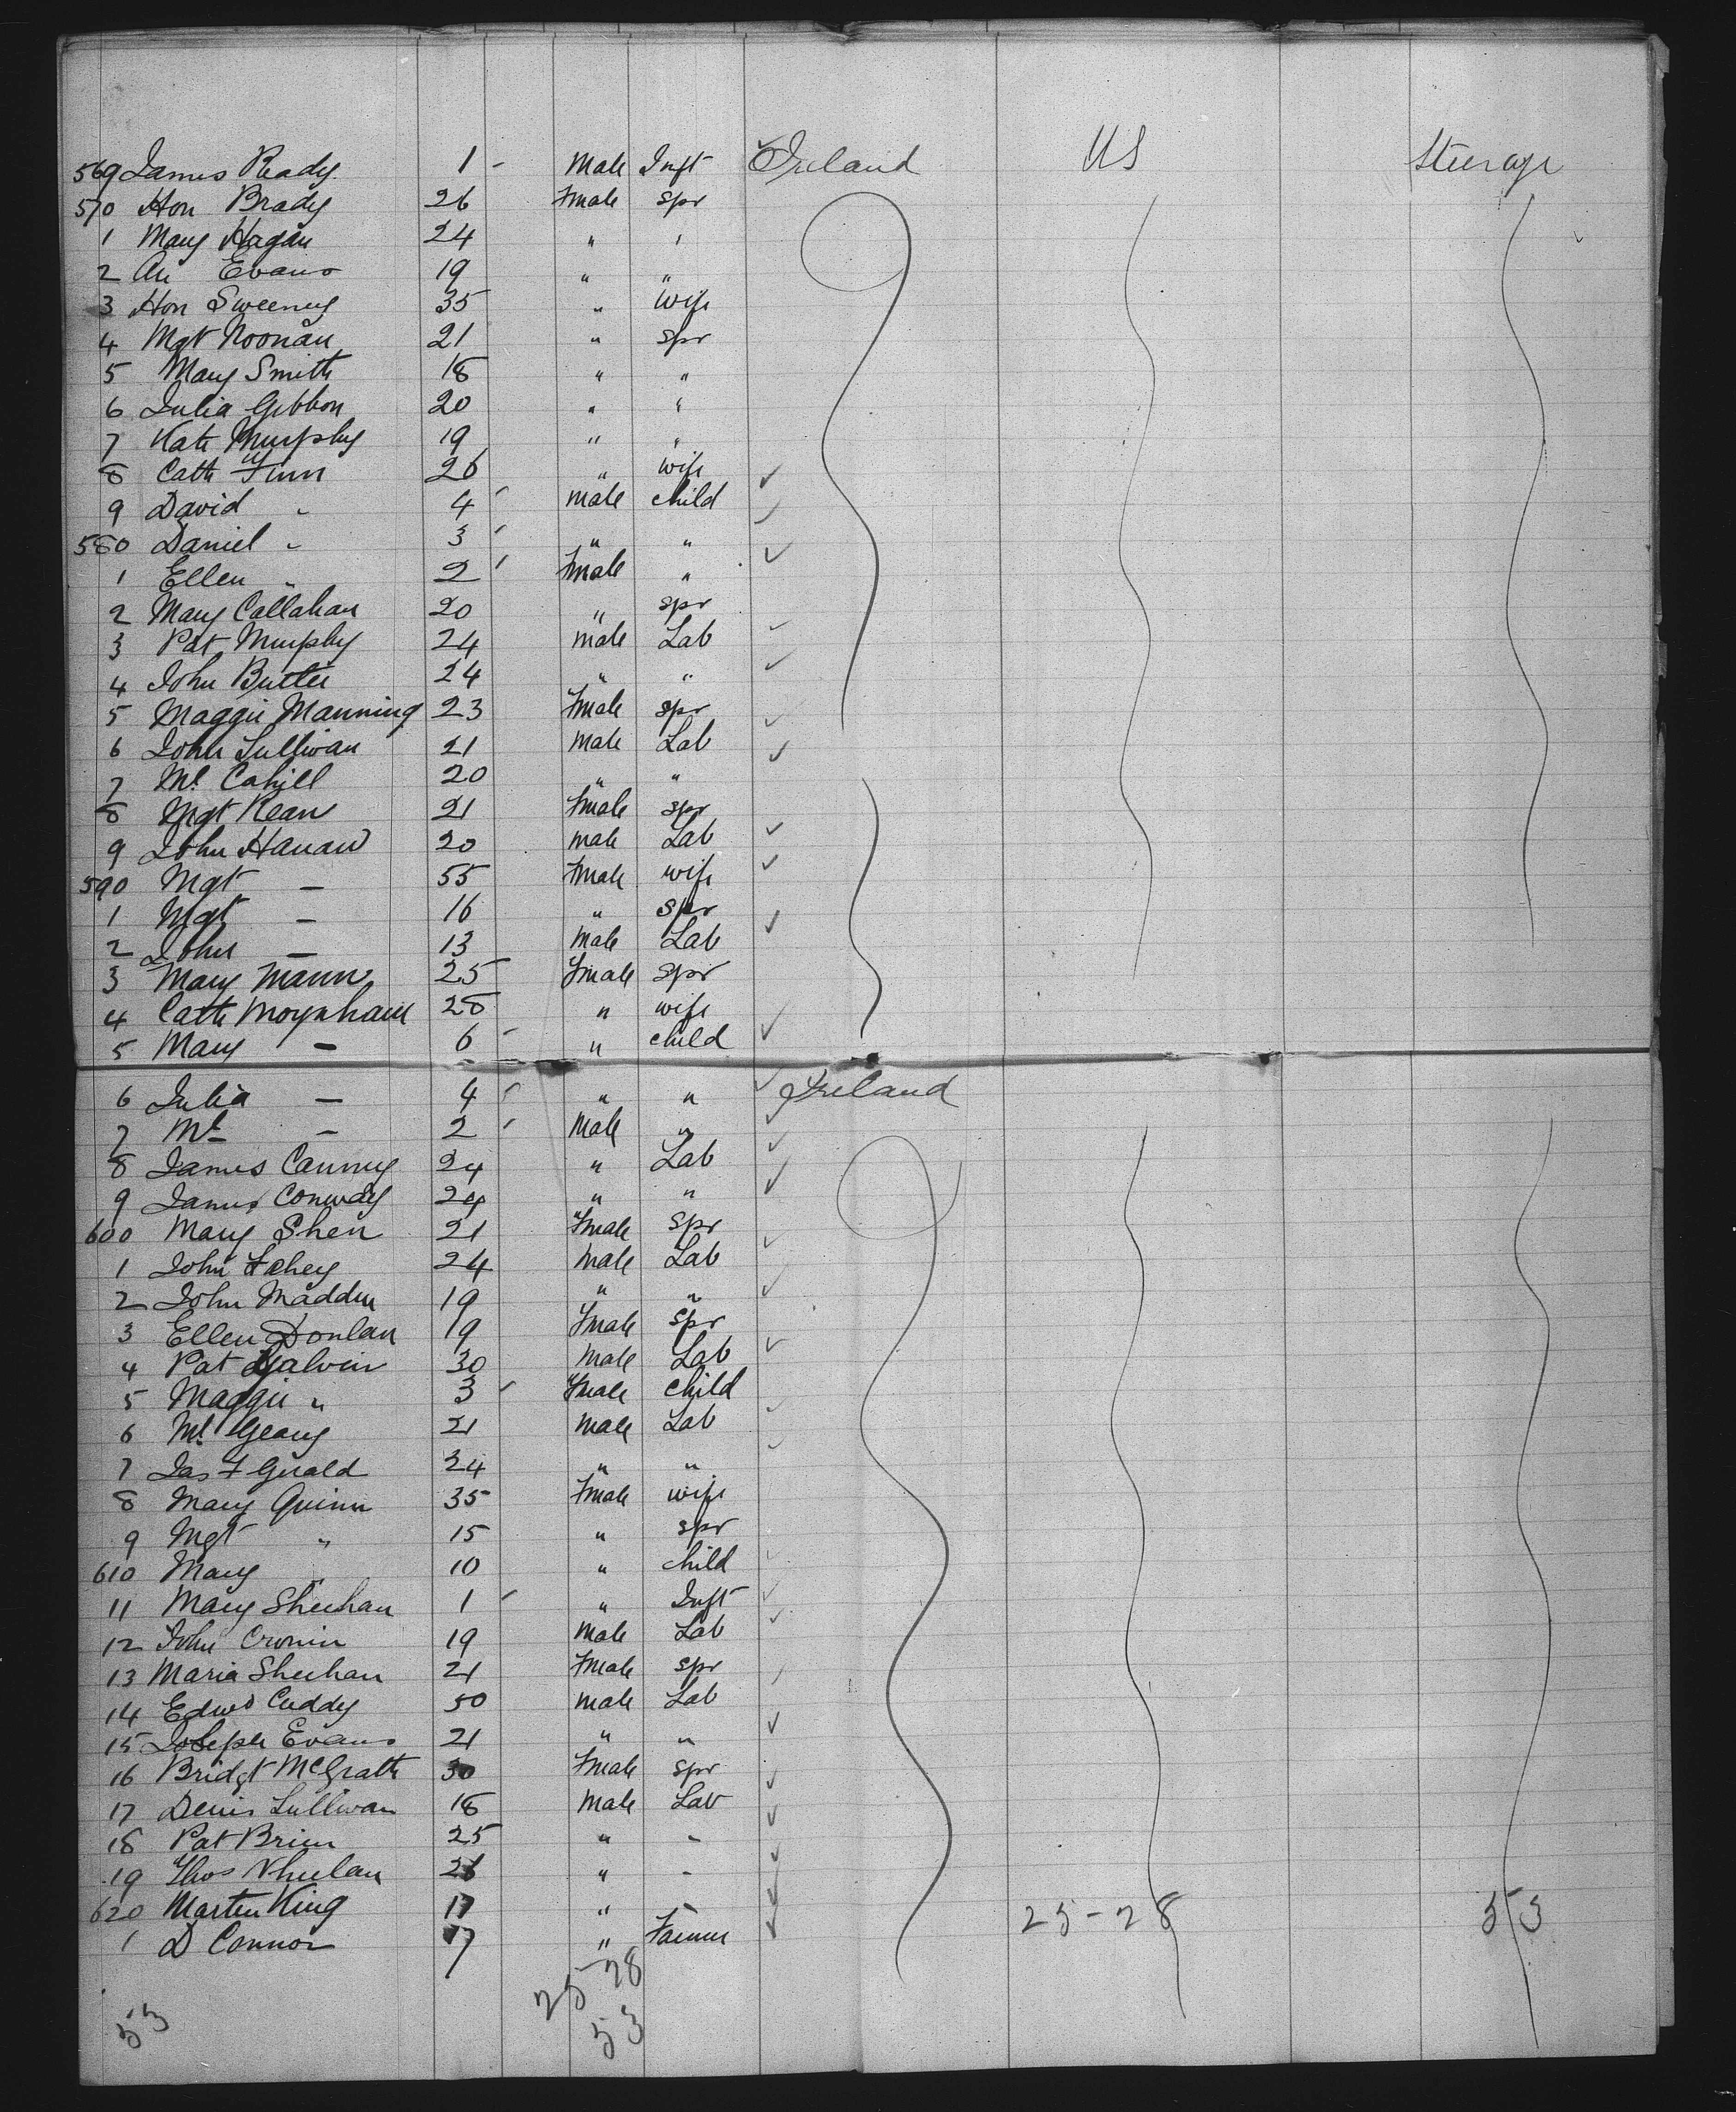 569 James Ready 1 - Male Inft Ireland US Steerage
570 Hon Brady 26 Fmale Spr
1 Mary Hagan 24 " "
2 An Evans 19 " "
3 Hon Sweeney 35 " Wife
4 Mgt Noonan 21 " Spr
5 Mary Smith 18 " "
6 Julia Gibbon 20 " "
7 Kate Murphy 19 " "
8 Cath Finn 26 " wife
9 David " 4 - male child
580 Daniel " 3 - " "
1 Ellen " 2 - Fmale "
2 Mary Callahan 20 " spr
3 Pat Murphy 24 male Lab
4 John Butler 24 " "
5 Maggie Manning 23 Fmale spr
6 John Sullivan 21 male Lab
7 Ml Cahill 20 " "
8 Mgt Kean 21 Fmale spr
9 John Hanan 20 male Lab
590 Mgt — 55 Fmale wife
1 Mgt — 16 " spr
2 John — 13 Male Lab
3 Mary Mann 25 Fmale spr
4 Cath Moynham 28 " wife
5 Mary — 6 - " child
6 Julia — 4 - " " Ireland
7 Ml — 2 - Male "
8 James Canney 24 " Lab
9 James Conway 24 " "
600 Mary Shen 21 Fmale Spr
1 John Fahey 24 Male Lab
2 John Madden 19 " "
3 Ellen Donlan 19 Fmale Spr
4 Pat Galvin 30 Male Lab
5 Maggie " 3 - Fmale child
6 Ml Geary 21 male Lab
7 Jas F Gerald 24 " "
8 Mary Quinn 35 Fmale wife
9 Mgt " 15 " spr
610 Mary " 10 " child
11 Mary Sheehan 1 - " Inft
12 John Cronin 19 Male Lab
13 Maria Sheehan 21 Fmale spr
14 Edwd Cuddy 50 male Lab
15 Joseph Evans 21 " "
16 Bridgt McGrath 30 Fmale spr
17 Denis Sullivan 18 Male Lab
18 Pat Brien 25 " "
19 Thos Whelan 26 " "
620 Marten King 17 " " 25-28 53
1 D Connor 17 " Farmer
25-28
53 53